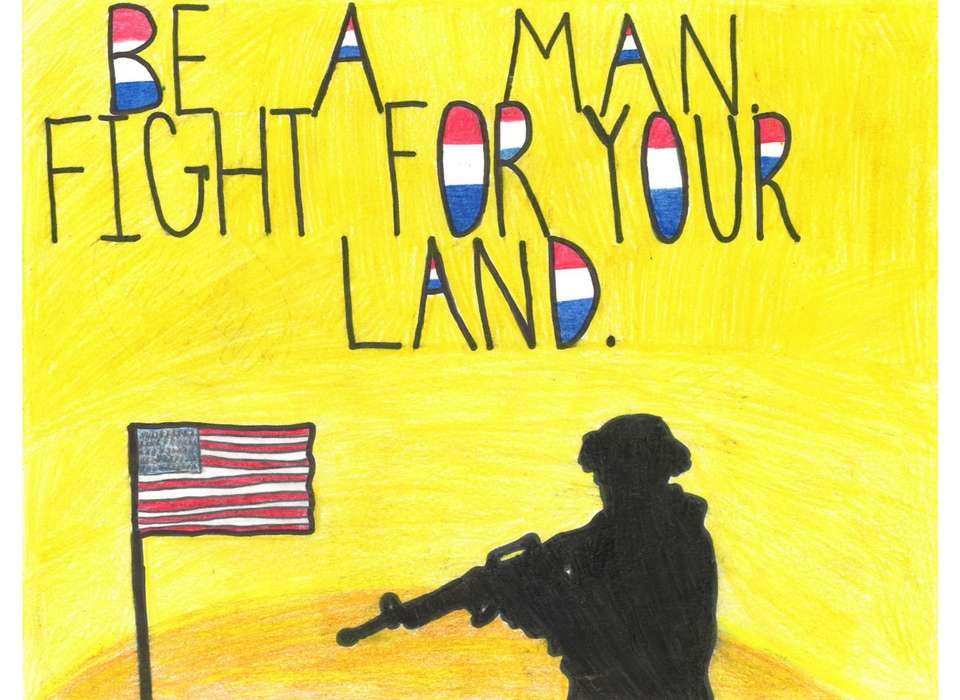 BE A MAN.
FIGHT FOR YOUR
LAND.